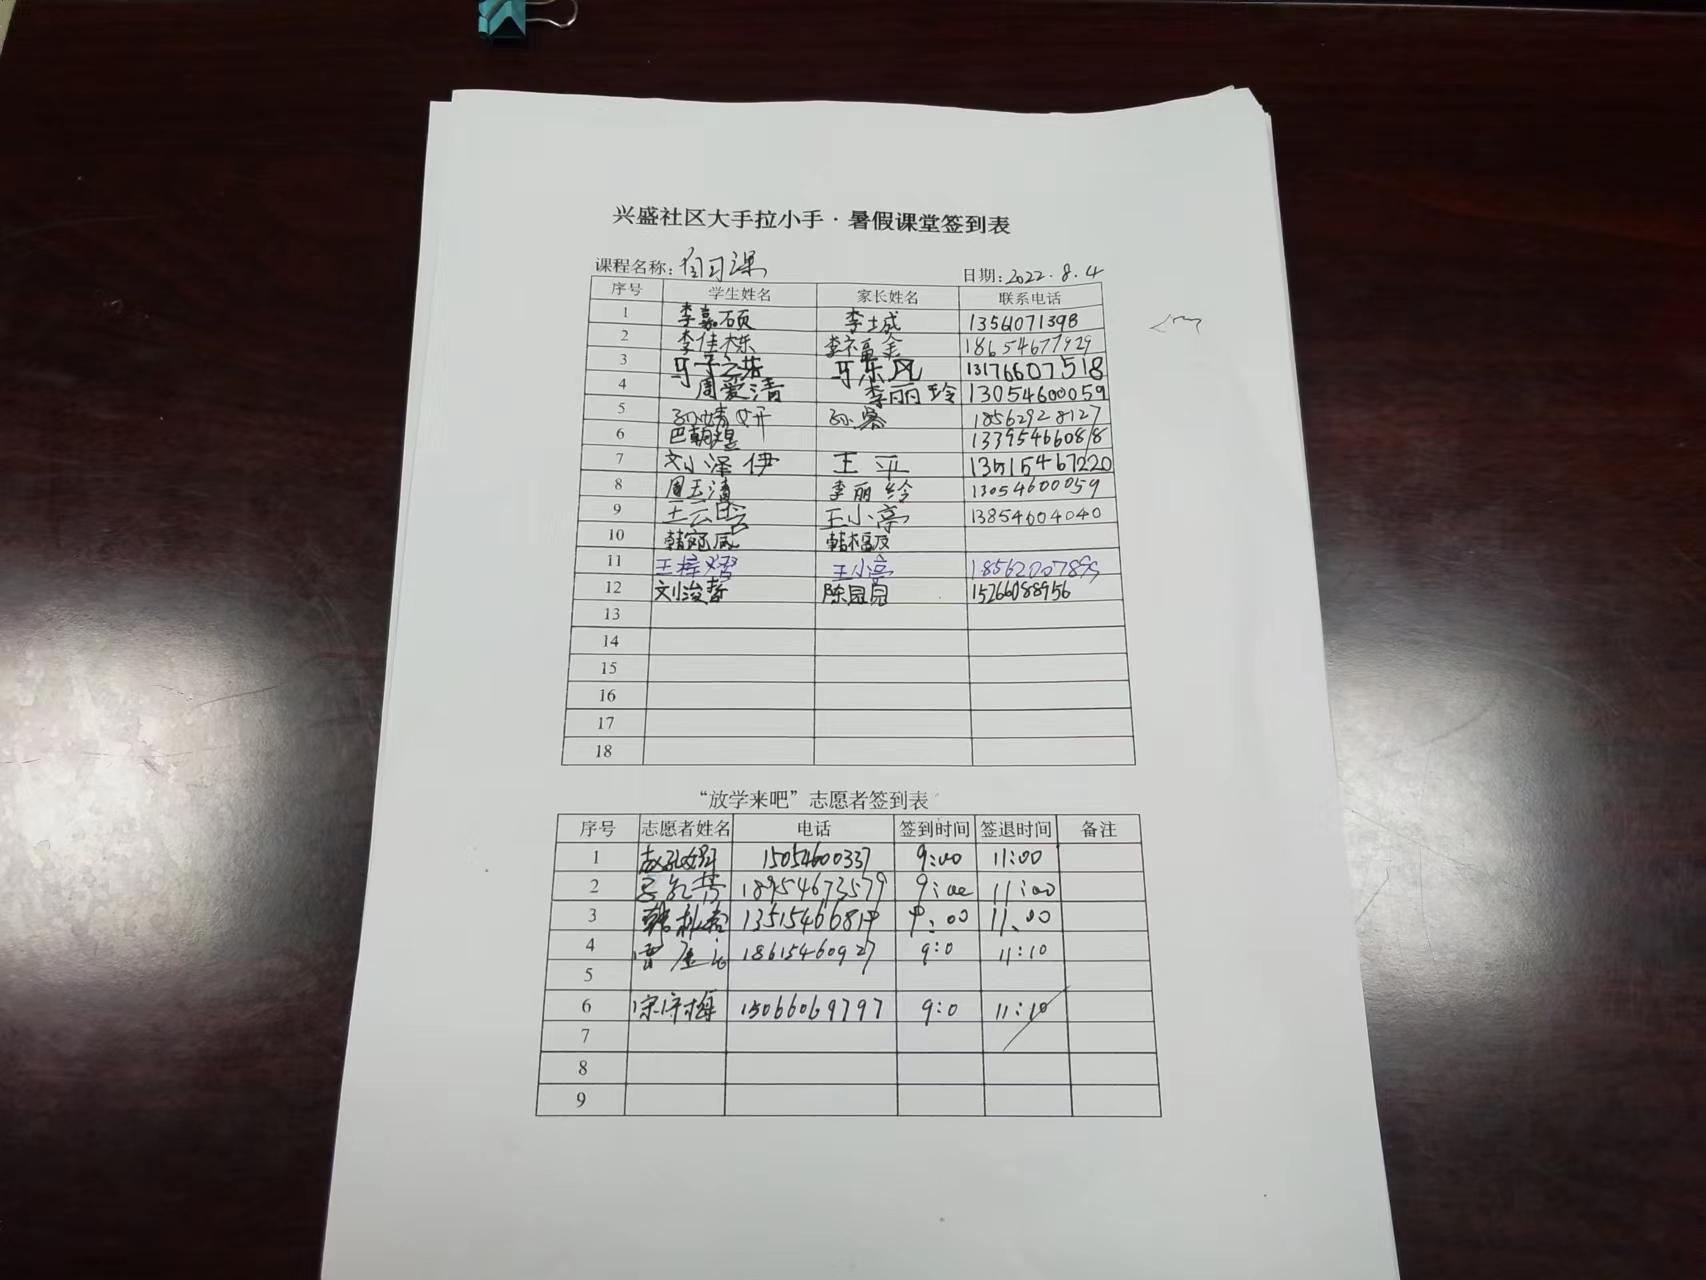 兴盛社区大手拉小手·暑假课堂签到表
课程名称：自习课 日期：2022.8.4
序号 学生姓名 家长姓名 联系电话
1 李嘉硕 李士成 13561071398
2 李佳栋 李福金 18654677929
3 牙子之芸 牙东风 13176607518
4 周爱清 李丽玲 13054600059
5 孙婧妍 孙 18562928127
6 巴朝煜 13395466088
7 刘小泽伊 王平 13515467220
8 周玉清 李丽玲 13054600059
9 王云 王小亭 13854604040
10 韩
11 王梓 王小亭
12 刘浚哲 陈园园 15266088956
13
14
15
16
17
18
“放学来吧”志愿者签到表
序号 志愿者姓名 电话 签到时间 签退时间 备注
1 15054600337 9:00 11:00
2 18954673579 9:00 11:00
3 韩 9:00 11:00
4 18615460927 9:0 11:10
5
6 宋 梅 15066069797 9:0 11:10
7
8
9